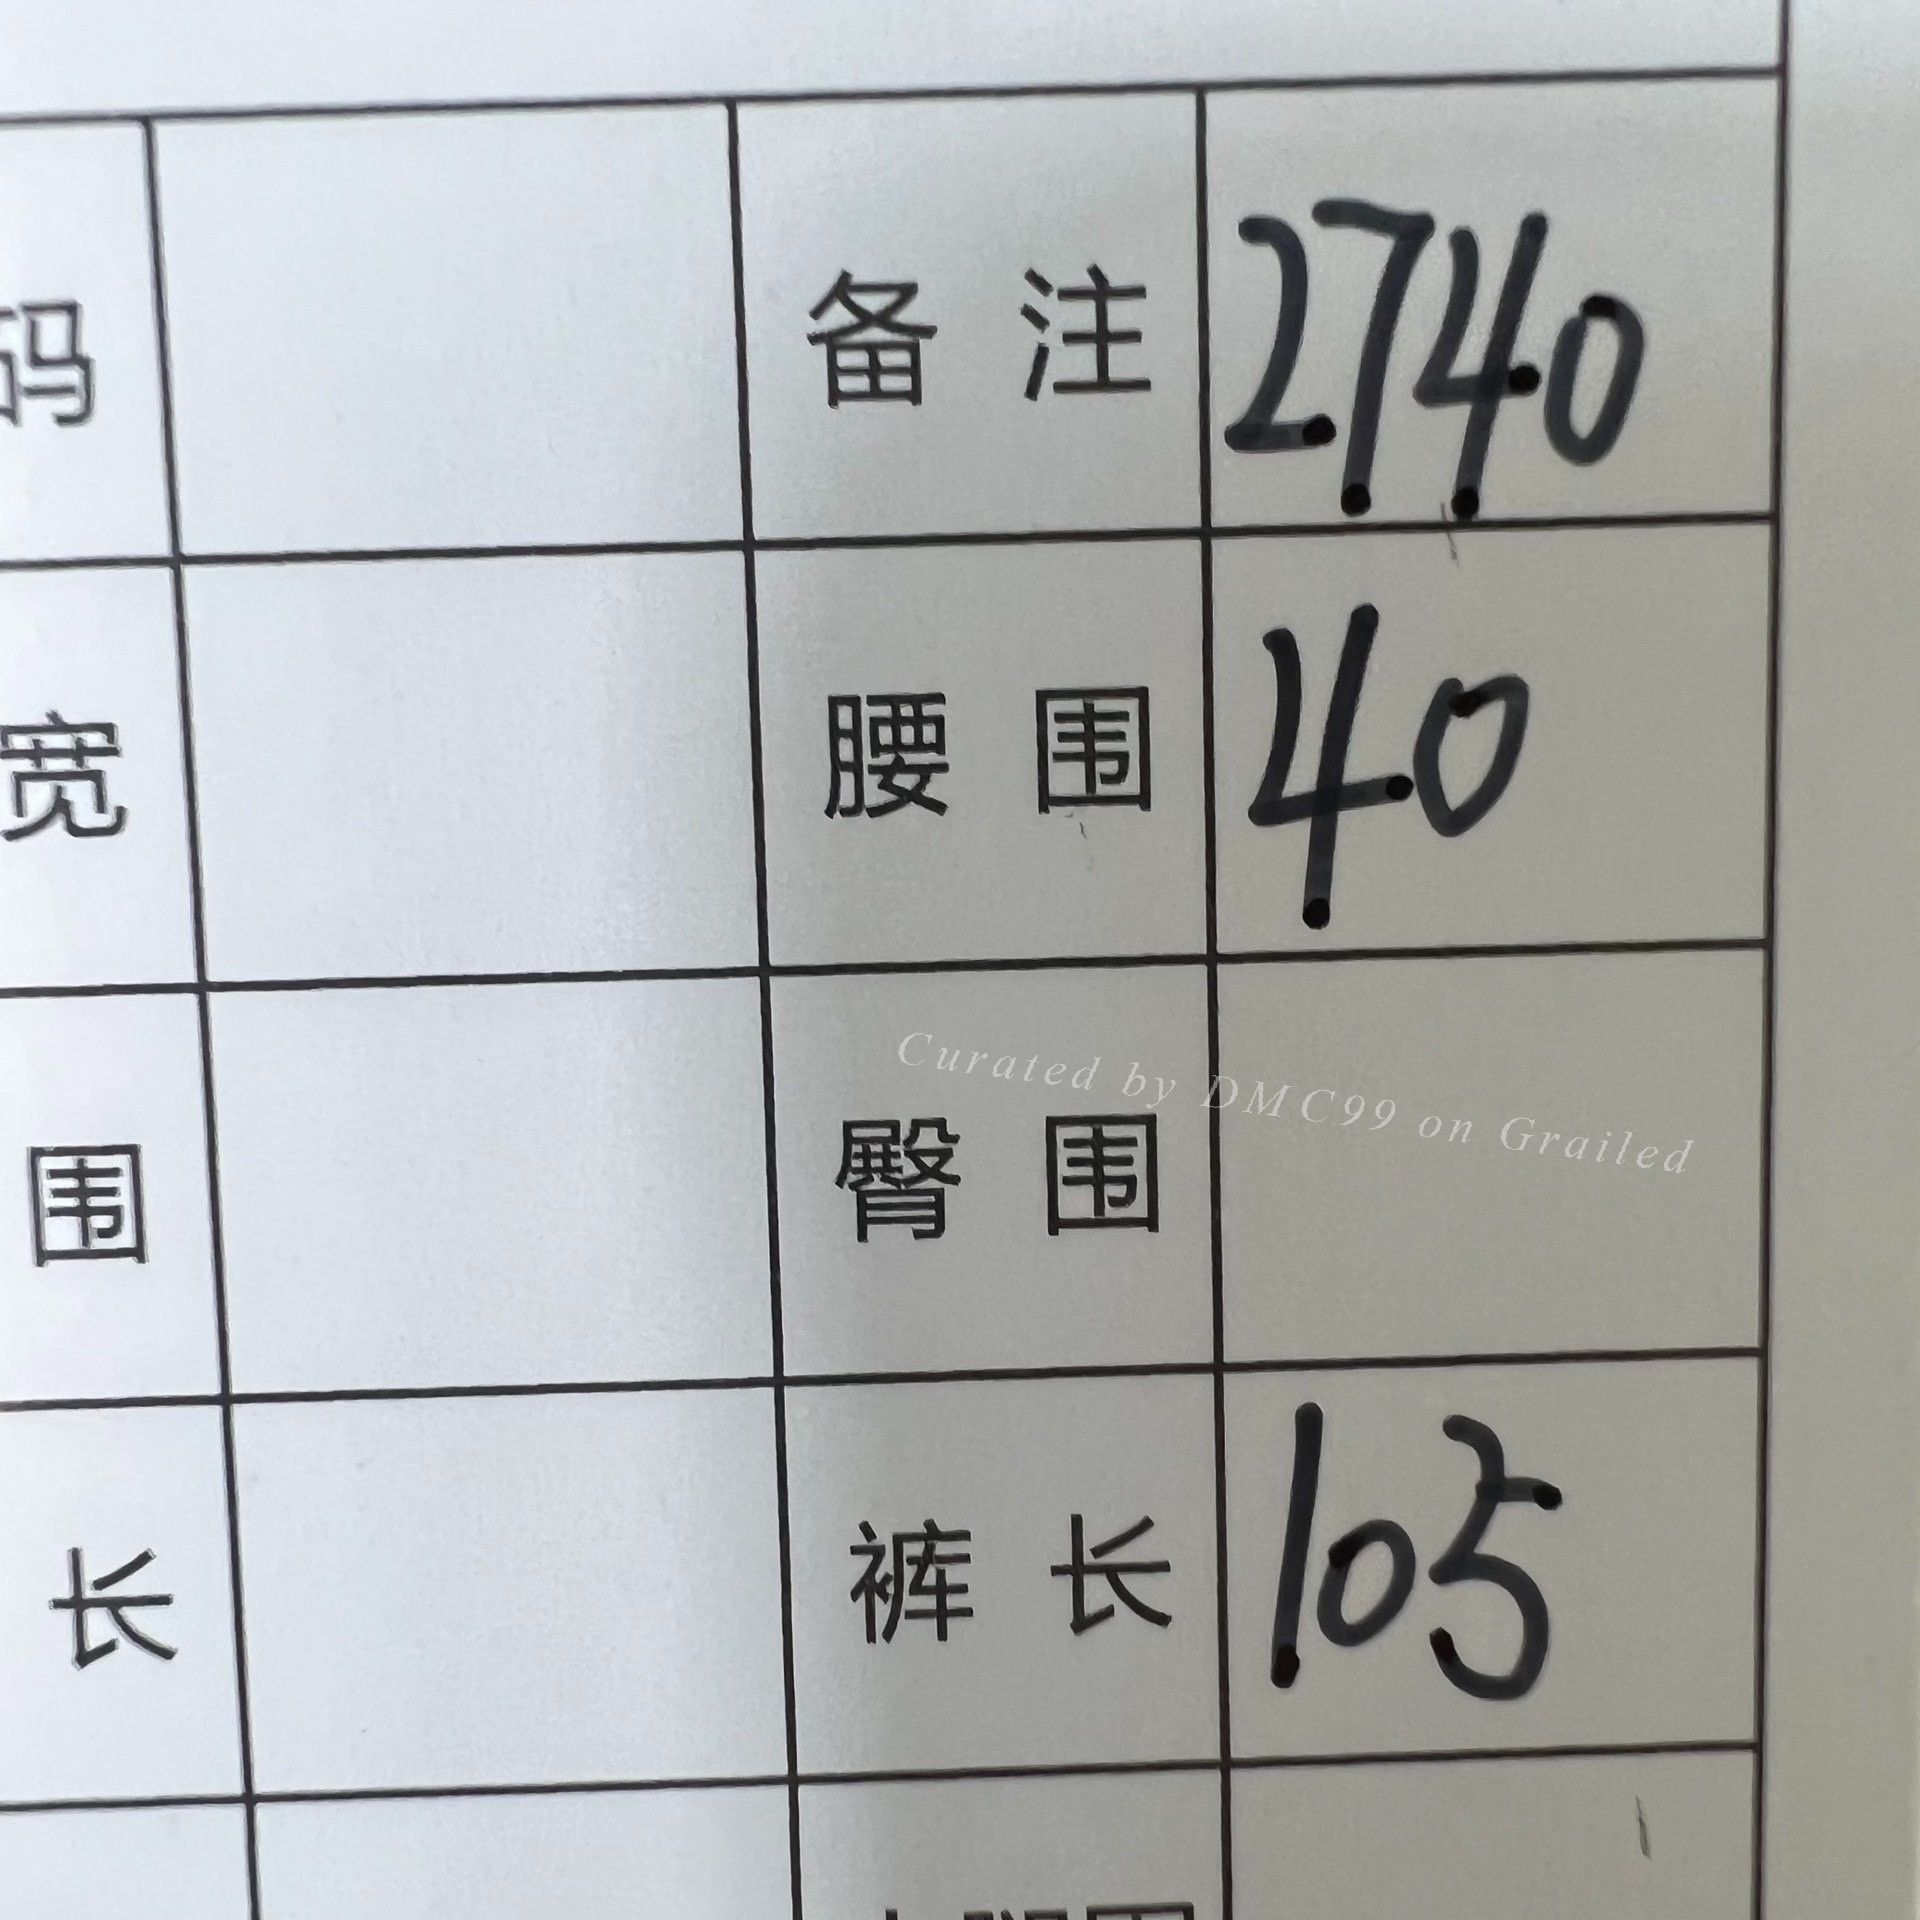 码 备 注 2740
宽 腰 围 40
Curated by DMC99 on Grailed
围 臀 围
长 裤 长 105